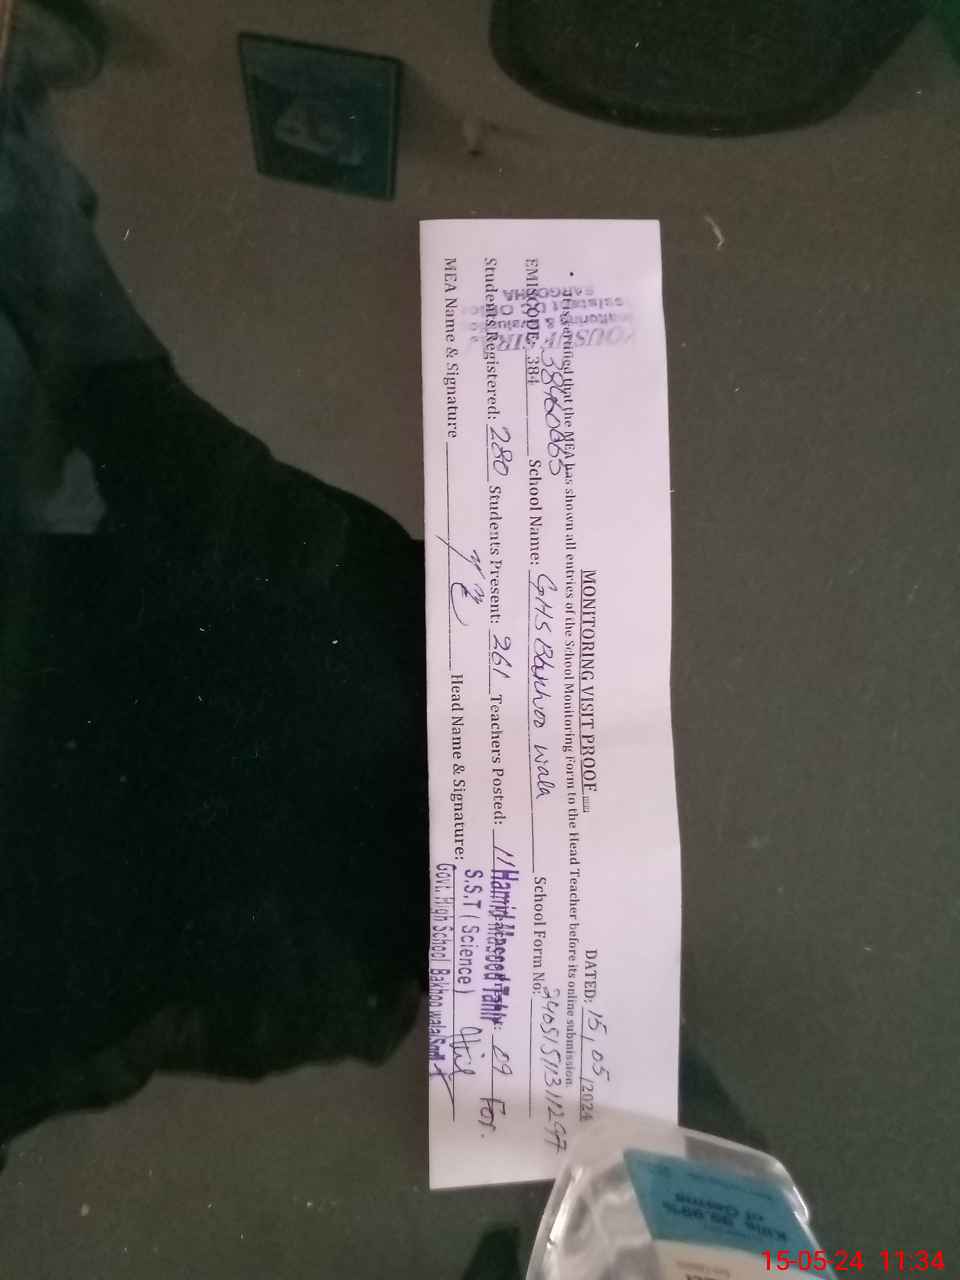 MONITORING VISIT PROOF
DATED: 15,05/2024
• It is certified that the MEA has shown all entries of the School Monitoring Form to the Head Teacher before its online submission.
EMISCODE: 384 38460065 School Name: GHS Bakhoo wala School Form No:
Students Registered: 280 Students Present: 261 Teachers Posted: 11 09
MEA Name & Signature Head Name & Signature:
Hamid Masood Tahir For.
S.S.T ( Science )
Govt. High School Bakhoo wala
SARGODHA
Kills 99.99%
of Germs
15-05-24 11:34